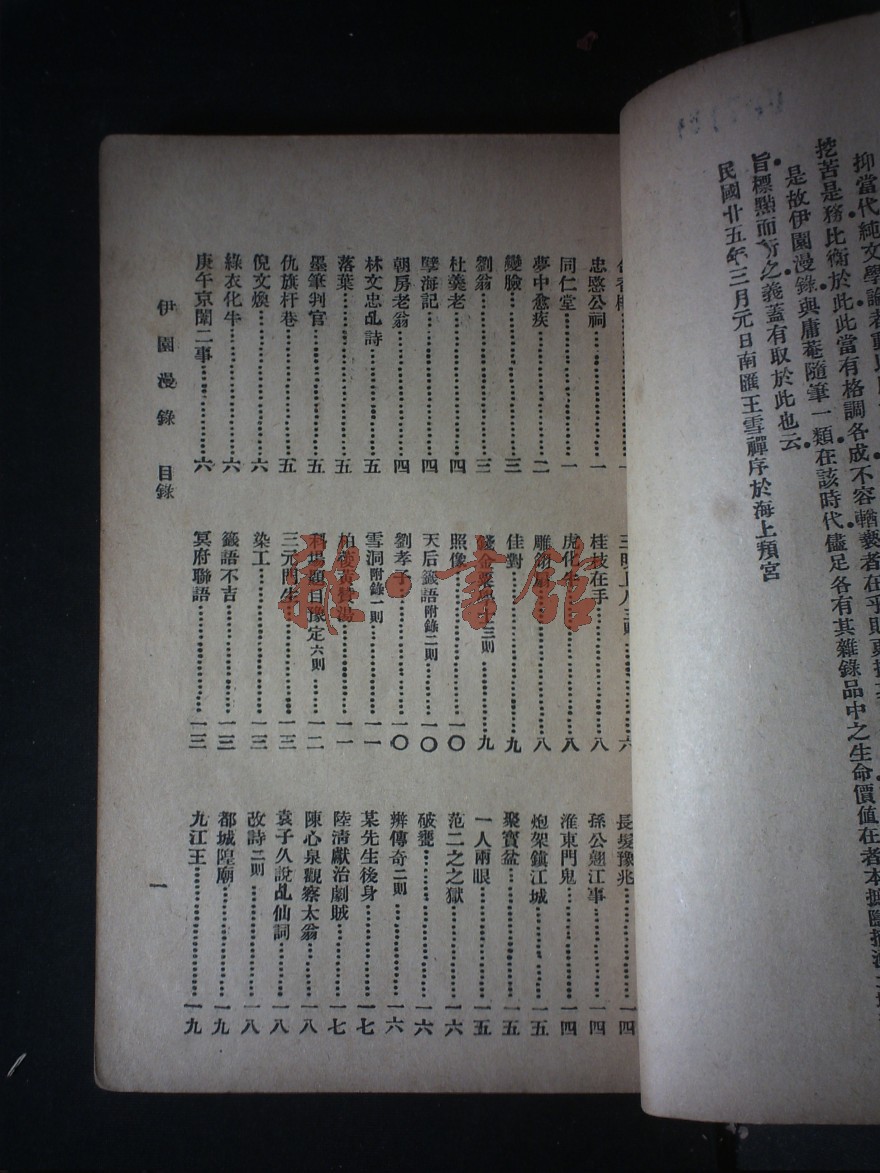 抑當代純文學論者動
挖苦是務比衡於此此當有格調各成不容輶褻者在乎
是故伊園漫錄與庸菴隨筆一類在該時代儘足各有其雜錄品中之生命價值在者本
旨標點而行之義蓋有取於此也云
民國廿五年三月元日南匯王雪禪序於海上預宮
忠愍公祠…………一
同仁堂…………一
夢中愈疾…………二
變臉…………三
劉翁…………三
杜羹老…………四
孽海記…………四
朝房老翁…………四
林文忠乩詩…………五
落葉…………五
墨筆判官…………五
仇旗杆巷…………五
倪文煥…………六
綠衣化牛…………六
庚午京闈二事…………六
三則…………六
桂枝在手…………八
虎化牛…………八
雕翎扇…………八
佳對…………九
三則…………九
照像…………一〇
天后籤語附錄二則…………一〇
劉孝子…………一〇
雪洞附錄一則…………一一
…………一一
科場題目豫定六則…………一二
三元門生…………一三
染工…………一三
籤語不吉…………一三
冥府聯語…………一三
長髮豫兆…………一四
孫公翹江事…………一四
淮東門鬼…………一四
炮架鎮江城…………一五
聚寶盆…………一五
一人兩眼…………一五
范二之之獄…………一六
破甕…………一六
辨傳奇二則…………一六
某先生後身…………一七
陸清獻治劇賊…………一七
陳心泉觀察太翁…………一八
袁子久說乩仙詞…………一八
改詩二則…………一八
都城隍廟…………一九
九江王…………一九
伊園漫錄 目錄
一
雅·書館